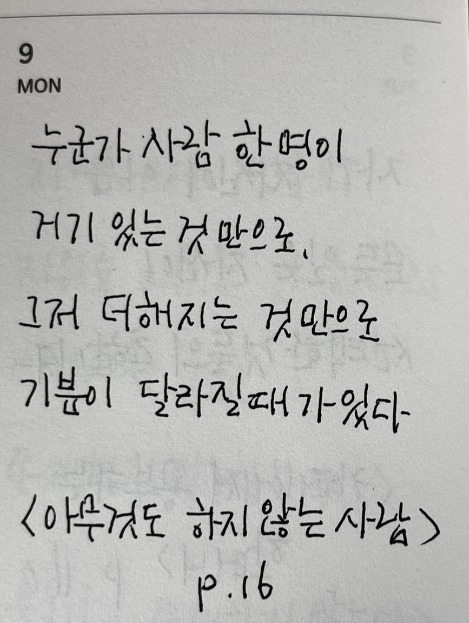 9
MON
누군가 사람 한 명이
거기 있는 것 만으로,
그저 더해지는 것 만으로
기분이 달라질때가 있다
<아무것도 하지 않는 사람>
p.16